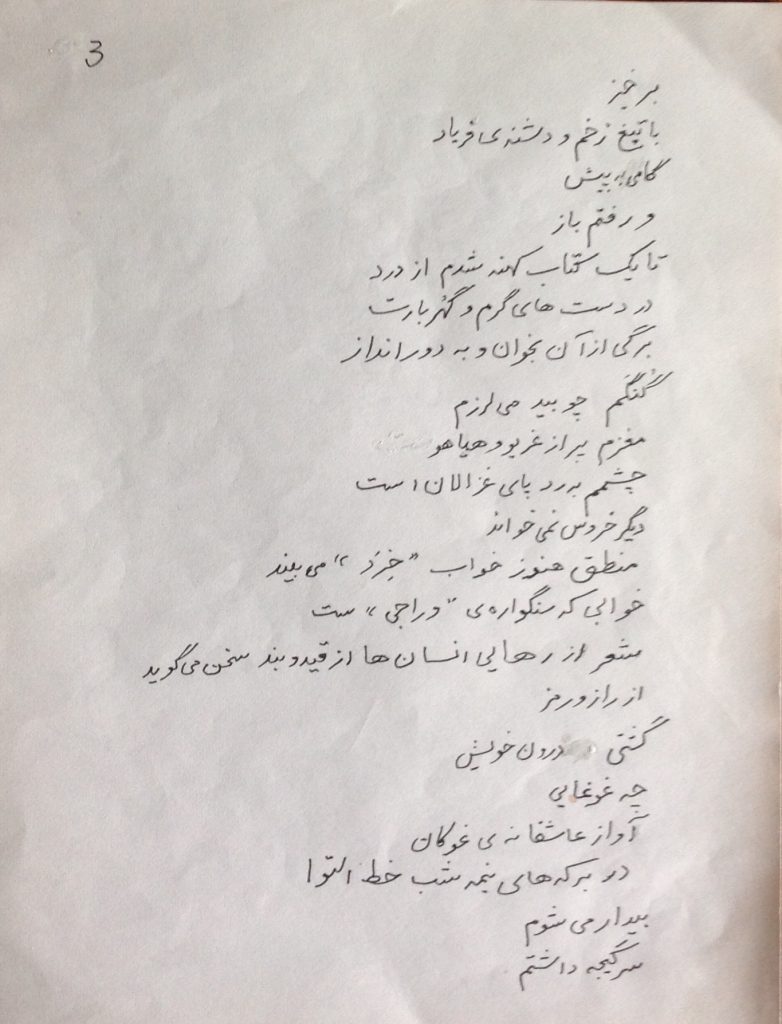 3
بر خیز
با تیغ زخم و دشنه‌ی فریاد
گامی به پیش
و رفتم باز
تا یک کتاب کهنه شدم از درد
در دست های گرم و گهُر بارت
برگی از آن بخوان و به دور انداز
گُنگم چو بید می لرزم
مغزم پر از غریو و هیاهو
چشمم به رد پای غزالان است
دیگر خروس نمی خواند
منطق هنوز خواب "خِرَد" می بیند
خوابی که سنگواره‌ی "وراجی" ست
شعر از رهایی انسان ها از قید و بند سخن می گوید
از راز و رمز
گشتی درون خویش
چه غوغایی
آواز عاشقانه ی غوکان
در برکه های نیمه شب خط التوا
بیدار می شوم
سرگیجه داشتم